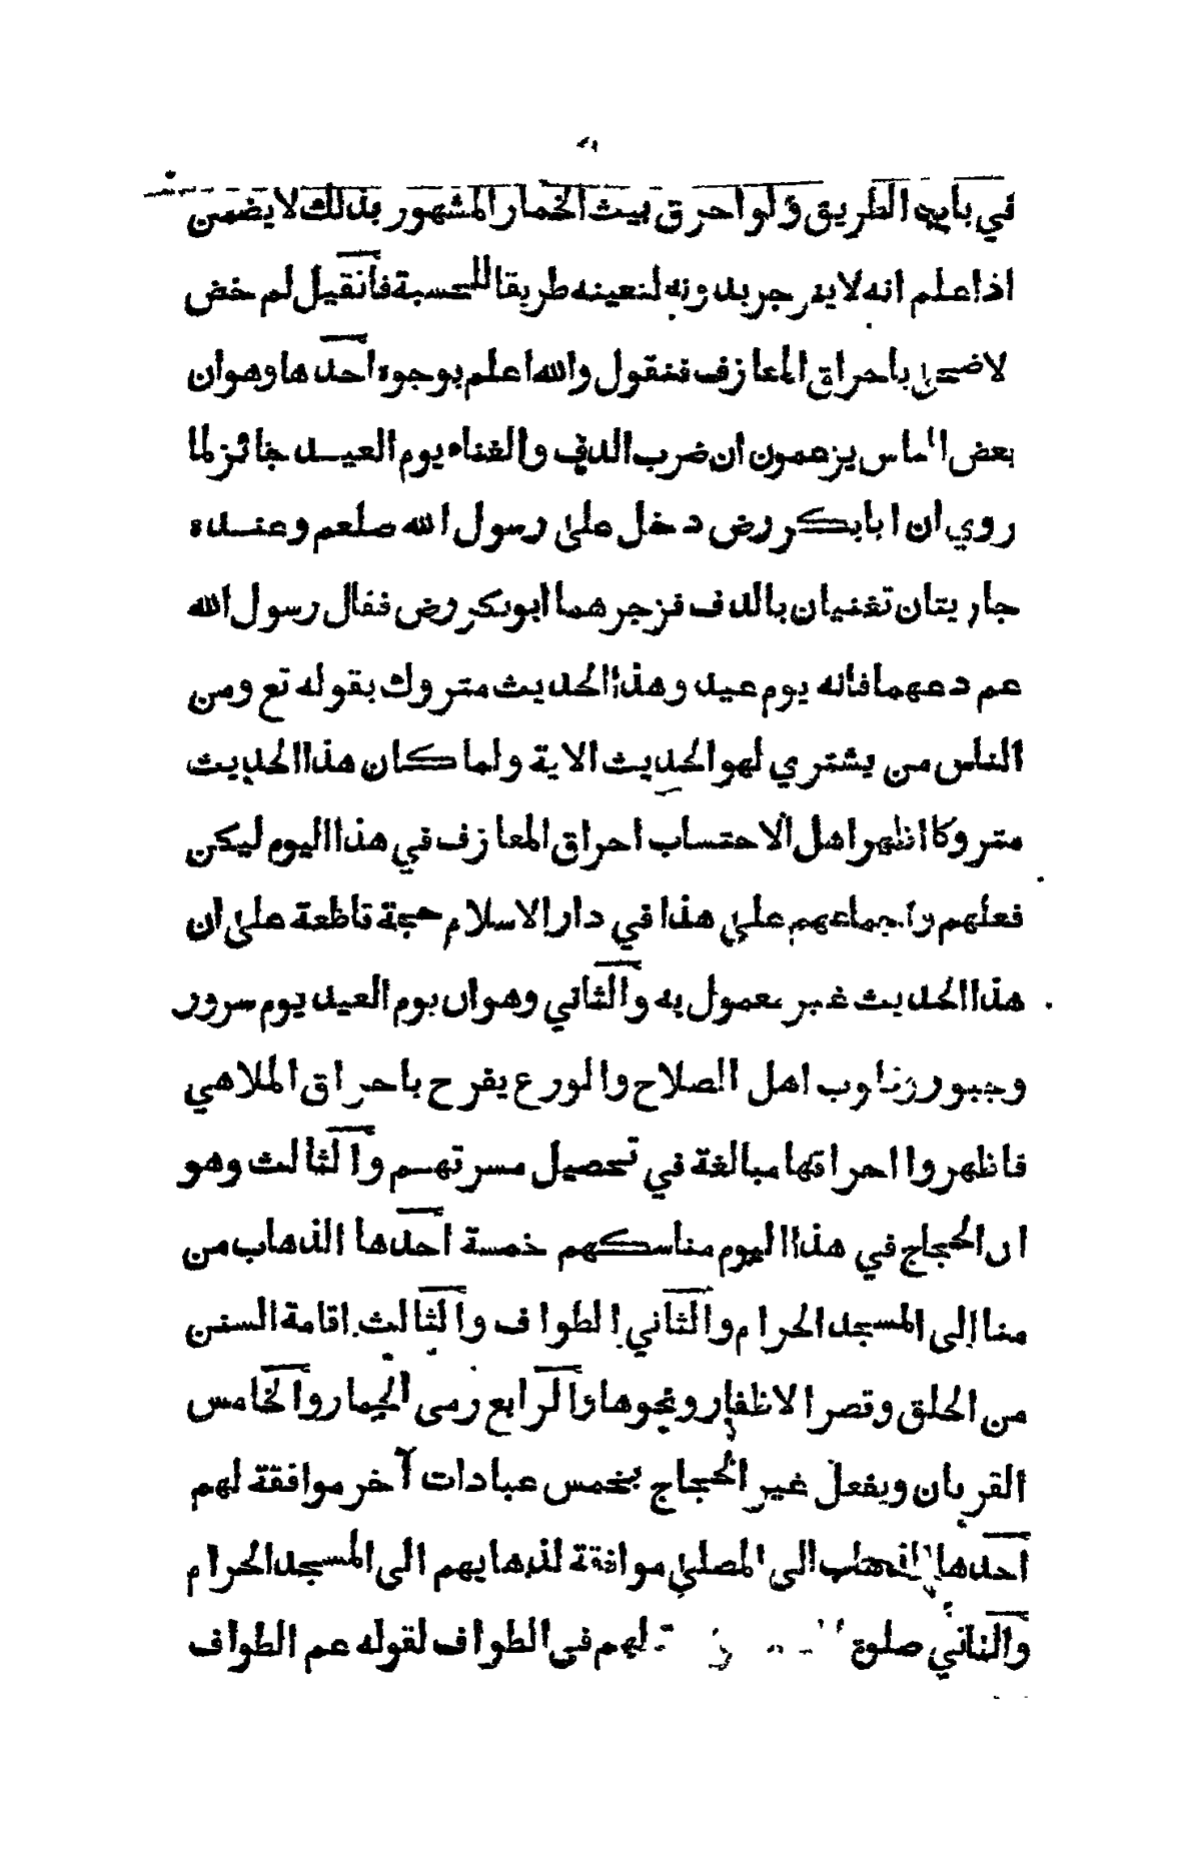 في باب الطريق ولو احرق بيت الخمار المشهور بذلك لا يضمن
اذا علم انه لا ينزجر بدونه لتعينه طريقا للحسبة فأن قيل لم خض
لاضحى باحراق المعازف فنقول والله اعلم بوجوه احدها وهو ان
بعض الناس يزعمون ان ضرب الدف والغناء يوم العيد جائز لما
روي ان ابا بكر رض دخل على رسول الله صلعم وعنده
جاريتان تغنيان بالدف فزجرهما ابو بكر رض فقال رسول الله
عم دعهما فانه يوم عيد وهذا الحديث متروك بقوله تع ومن
الناس من يشتري لهو الحديث الاية ولما كان هذا الحديث
متروكا اظهر اهل الاحتساب احراق المعازف في هذا اليوم ليكن
فعلهم واجماعهم على هذا في دار الاسلام حجة قاطعة على ان
هذا الحديث غير معمول به والثاني وهو ان يوم العيد يوم سرور
وحبور وقلوب اهل الصلاح والورع يفرح باحراق الملاهي
فاظهروا احراقها مبالغة في تحصيل مسرتهم والثالث وهو
ان الحجاج في هذا اليوم مناسكهم خمسة احدها الذهاب من
منا الى المسجد الحرام والثاني الطواف والثالث اقامة السنن
من الحلق وقصر الاظفار ونحوها والرابع رمى الجمار والخامس
القربان ويفعل غير الحجاج بخمس عبادات آخر موافقة لهم
احدها الذهاب الى المصلى موافقة لذهابهم الى المسجد الحرام
والثاني صلوة لهم في الطواف لقوله عم الطواف